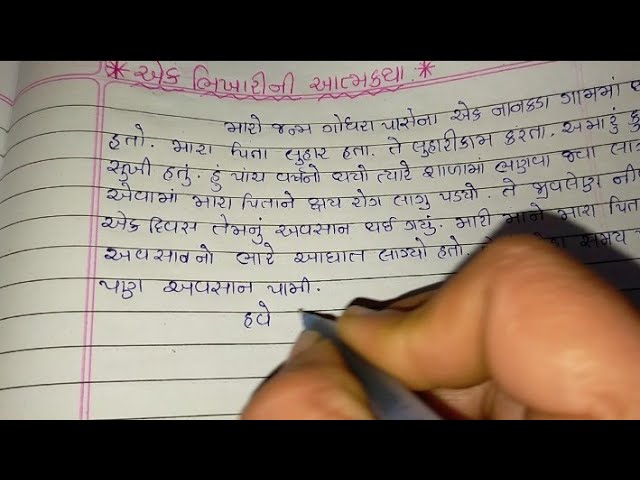 * એક ભિખારીની આત્મકથા. *
મારો જન્મ ગોધરા પાસેના એક નાનકડા ગામમાં
હતો. મારા પિતા લુહાર હતા. તે લુહારીકામ કરતા. અમારું
સુખી હતું. હું પાંચ વર્ષનો થયો ત્યારે શાળામાં ભણવા જવા
એવામાં મારા પિતાને ક્ષય રોગ લાગુ પડ્યો. તે જીવલેણ
એક દિવસ તેમનું અવસાન થઈ ગયું. મારી માને મારા પિતા
અવસાનનો ભારે આઘાત લાગ્યો હતો. સમય
પણ અવસાન પામી.
હવે